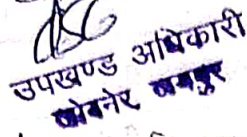 उपखण्ड अधिकारी
जोबनेर जयपुर